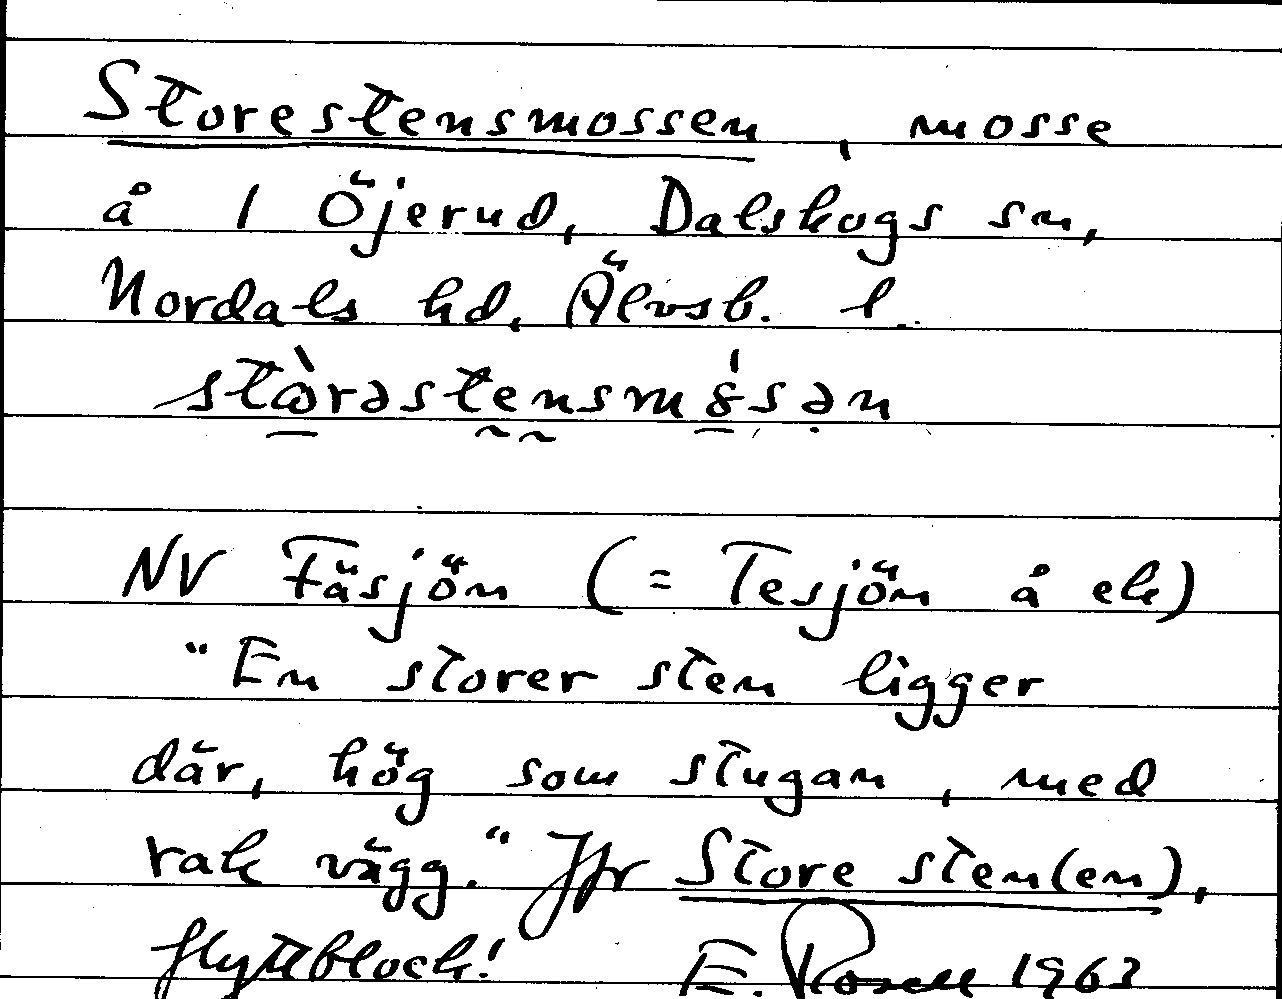 Storestensmossen, mosse
å 1 Öjerud, Dalskogs sn,
Nordals hd, Älvsb. l.
stòrəstensm8́sən
NV Fäsjön (= Tesjön å ek)
"En storer sten ligger
där, hög som stugan, med
rak vägg." Jfr Store sten(en),
flyttblock! E. Rosell 1963